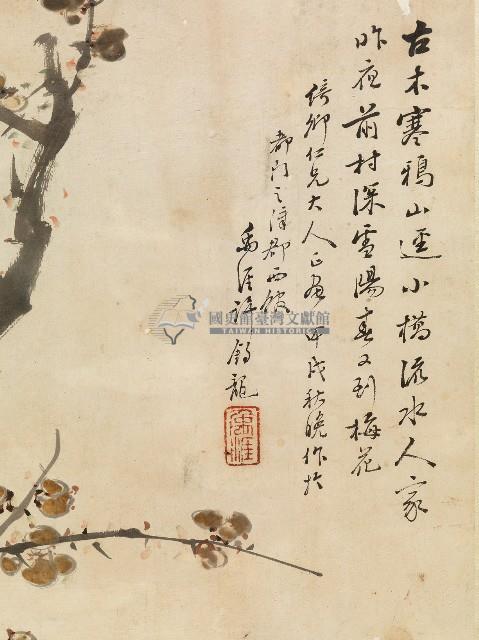 古木寒鴉山逕小橋流水人家
昨夜前村深雪陽春又到梅花
倚卿仁兄大人正畫甲戌秋晚作於
都門之漳郡西館
禹涯許鈞龍
禹涯
國史館臺灣文獻館
TAIWAN HISTORICA